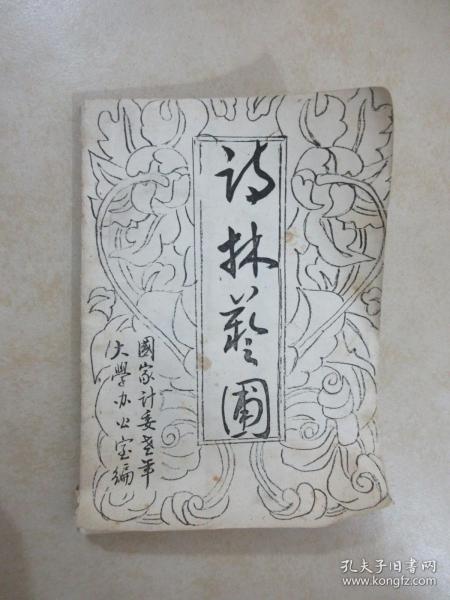 诗林藝圃
國家计委老年
大學办公室编
孔夫子旧书网
www.kongfz.com